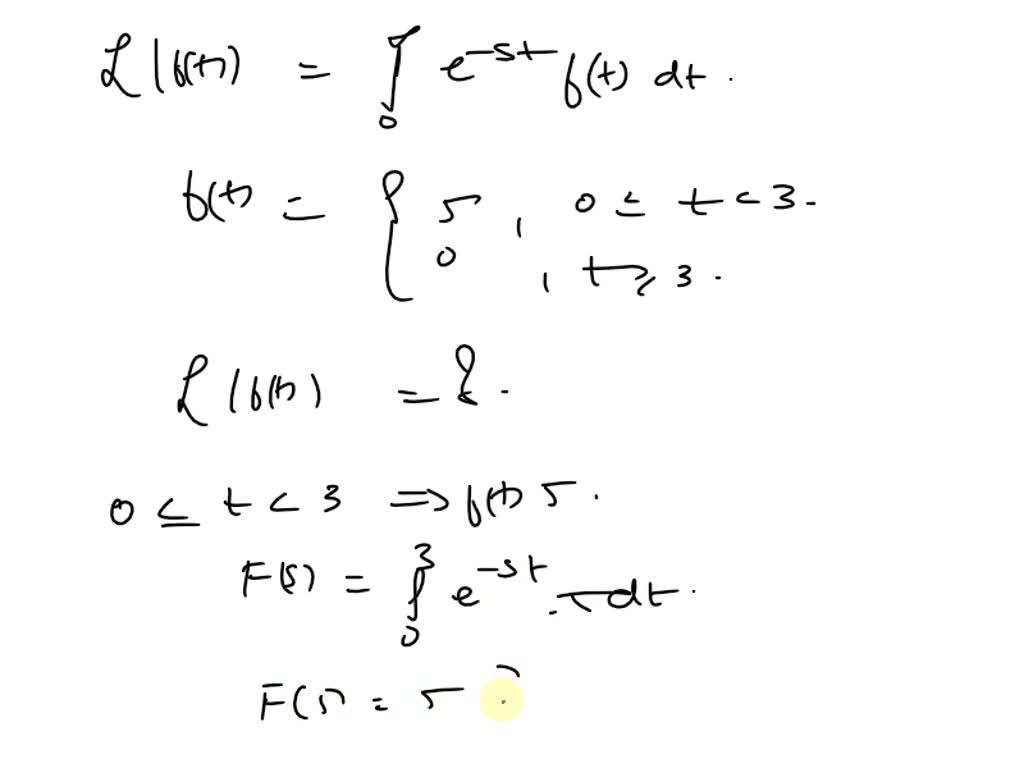 ℒ|f(t)) = ∫₀ e^{-st} f(t) dt.
f(t) = { 5 , 0 ≤ t < 3.
0 , t ≥ 3.
ℒ|f(t)) = { .
0 ≤ t < 3 ⇒ f(t) 5.
F(s) = ∫₀³ e^{-st} . 5 dt.
F(s) = 5